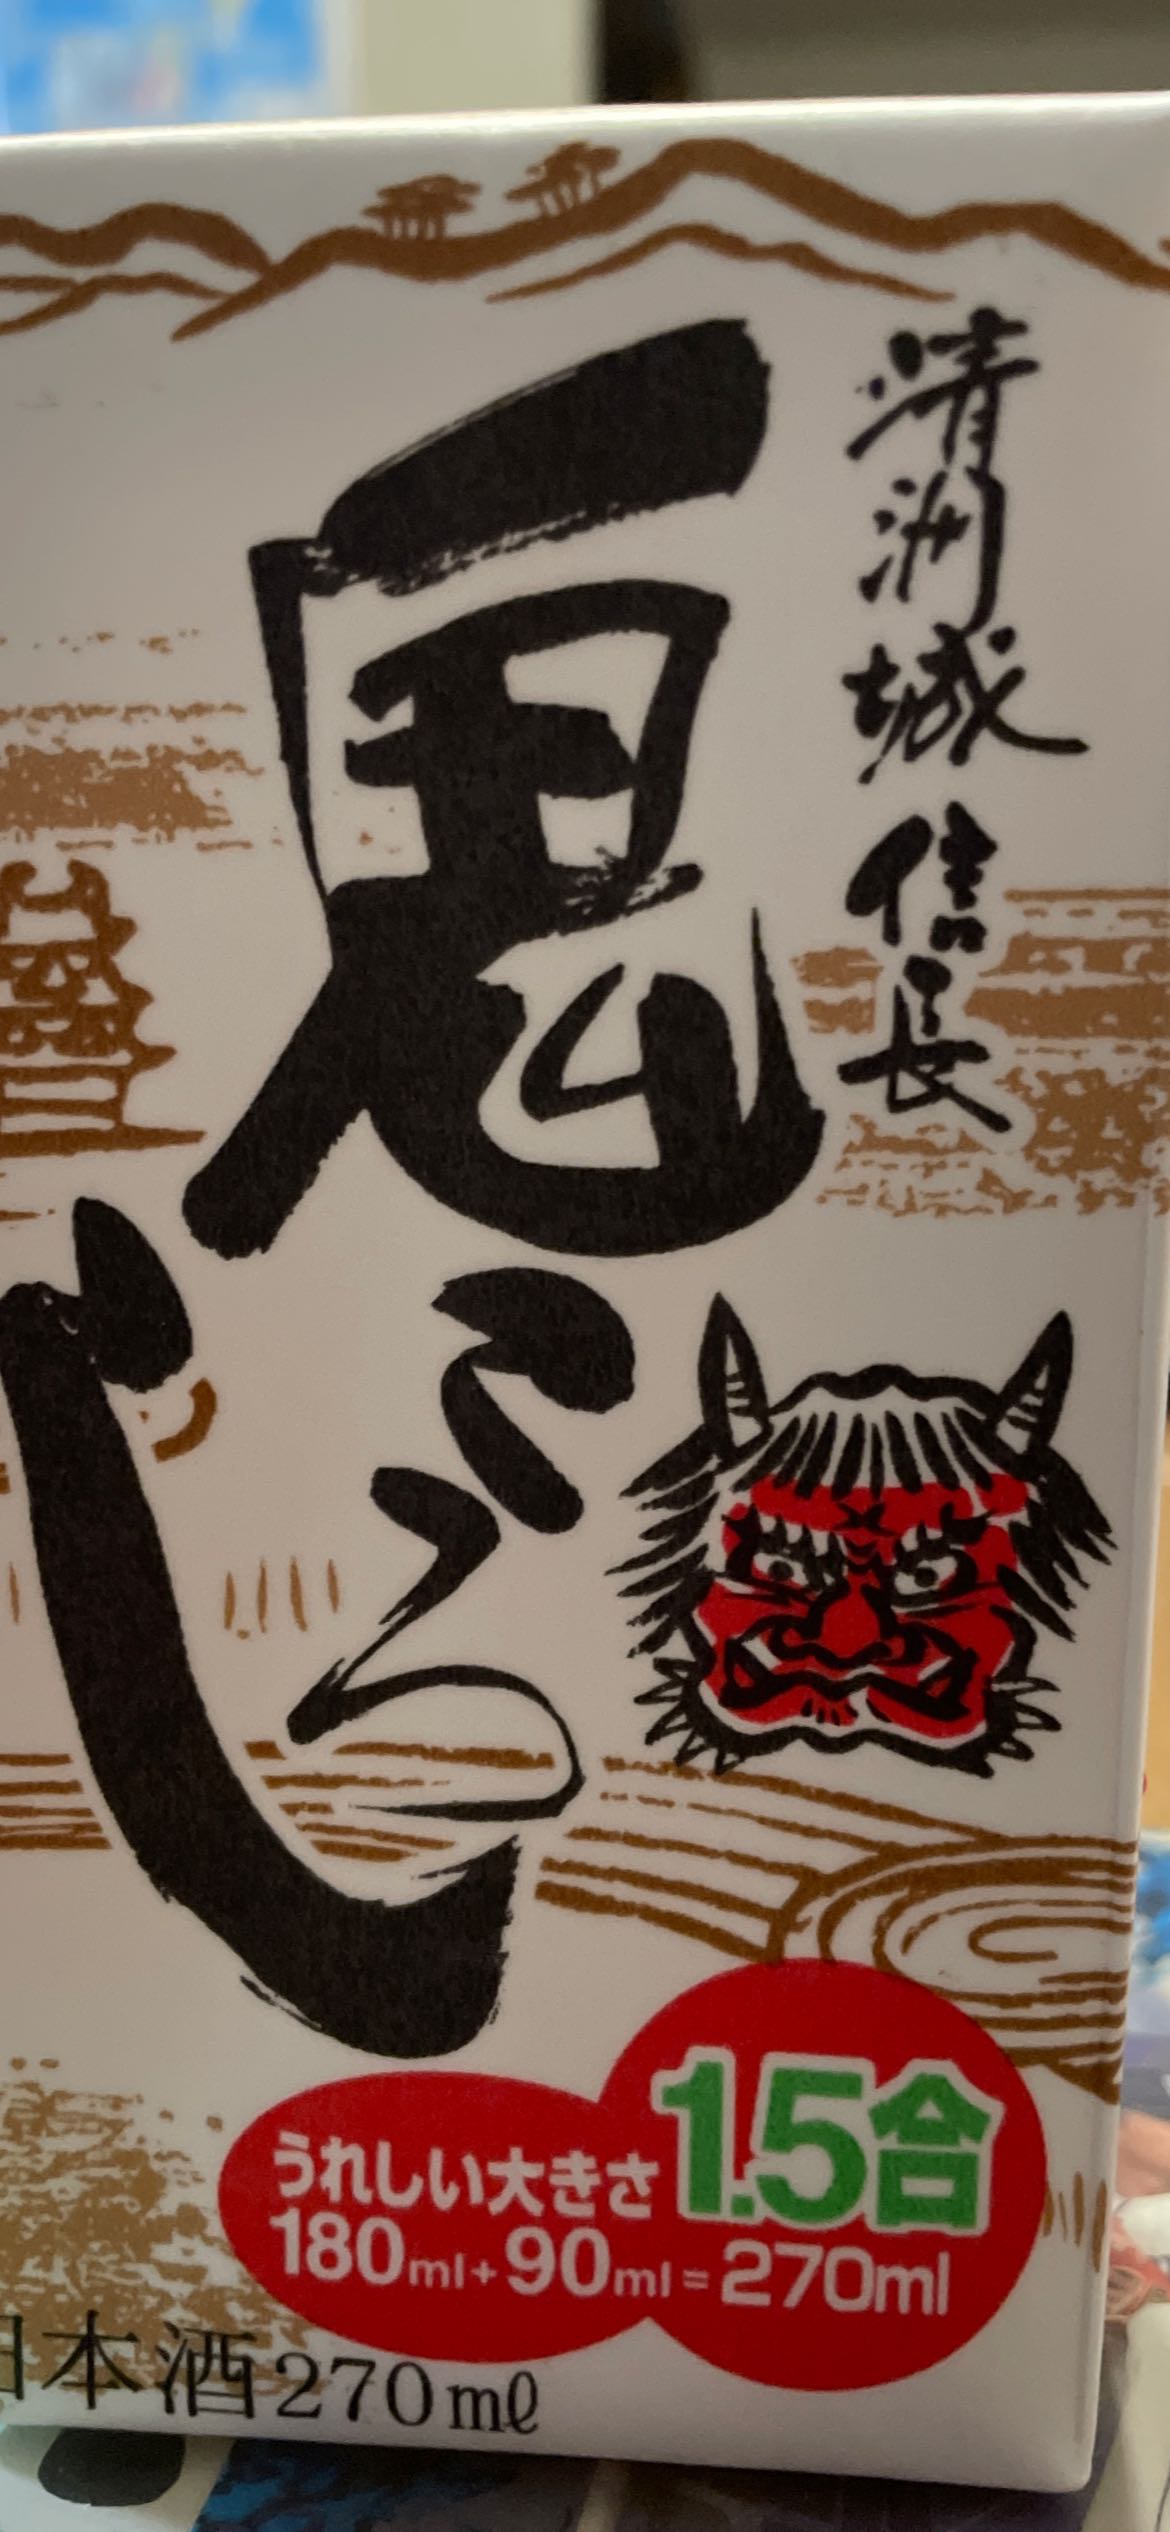 清洲城信長
鬼ころし
うれしい大きさ1.5合
180ml+90ml=270ml
日本酒270mℓ